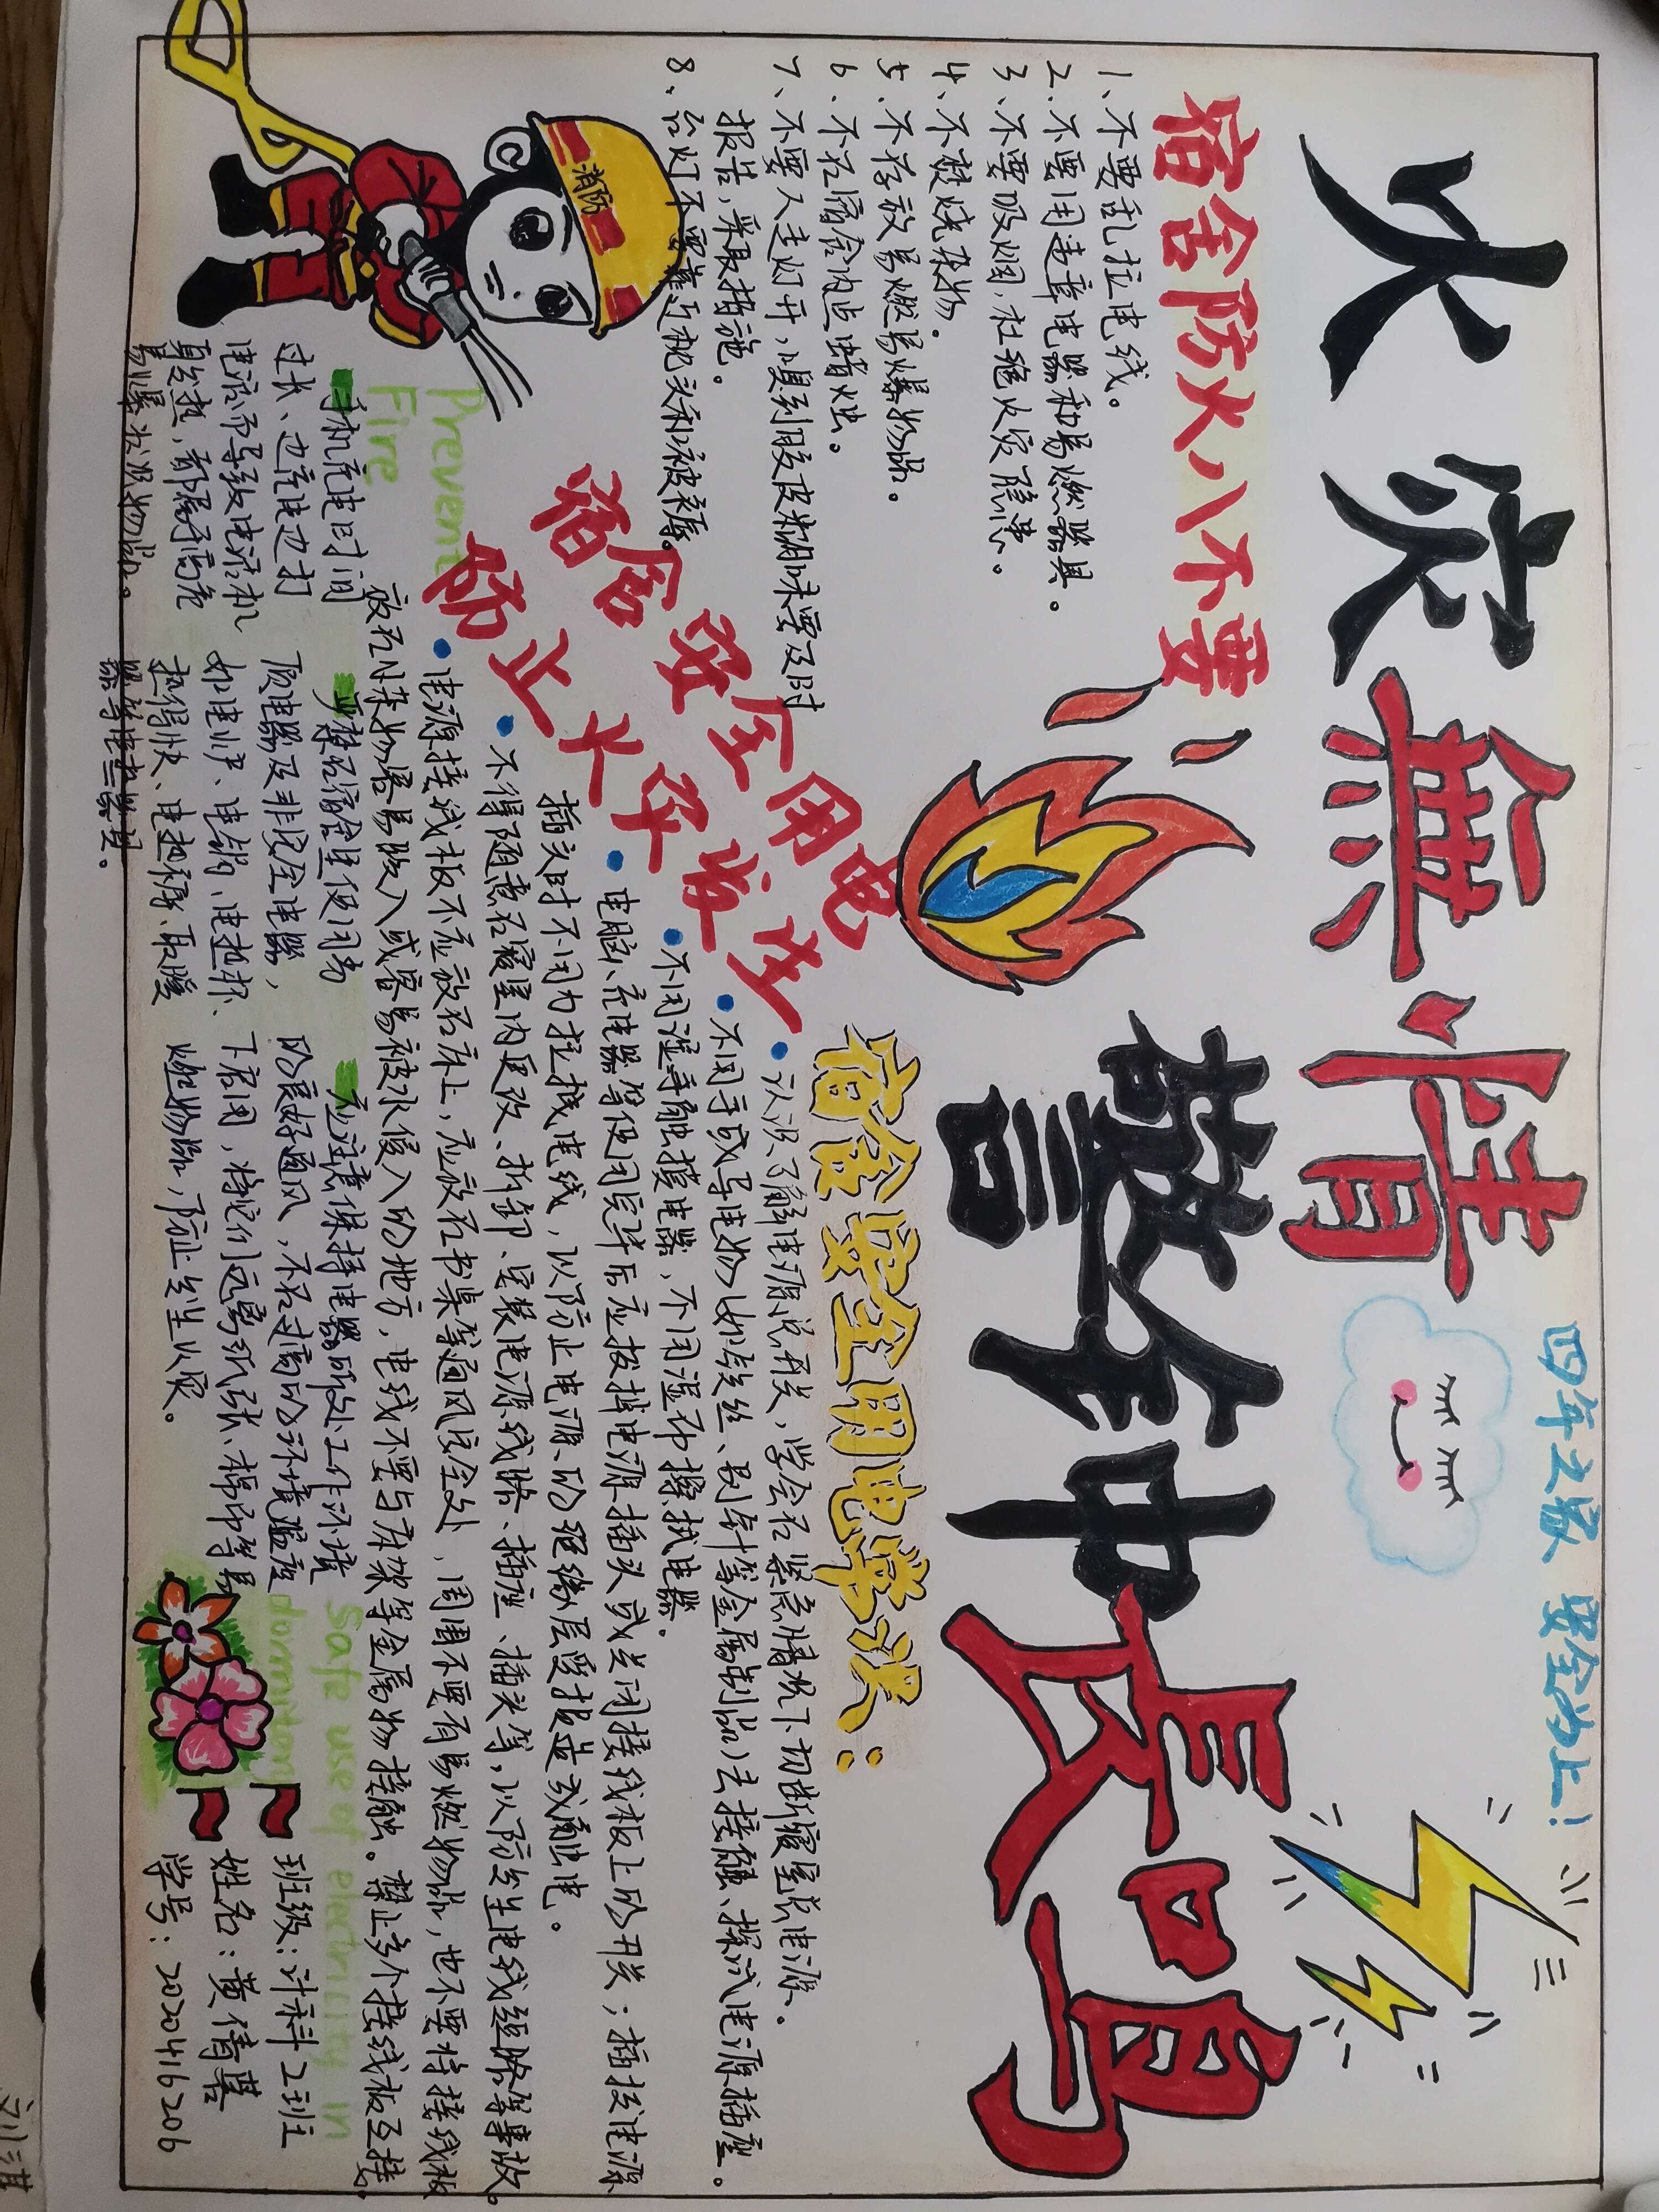 四年之家 安全为上!
火灾無情
警钟長鸣
宿舍防火八不要
1、不要乱拉电线。
2、不要用违章电器和易燃器具。
3、不要吸烟,杜绝火灾隐患。
4、不焚烧杂物。
5、不存放易燃易爆物品。
6、不在宿舍内点蜡烛。
7、不要人走灯开,嗅到胶皮糊味要及时
报告,采取措施。
8、台灯不要靠近枕头和被褥。
消防
宿舍安全用电
防止火灾发生
Prevent
Fire
宿舍安全用电常识:
认识了解电源总开关,学会在紧急情况下切断寝室总电源。
不用手或导电物(如铁丝、别针等金属制品)去接触、探试电源插座。
不用湿手触摸电器,不用湿布擦拭电器。
电脑、充电器等使用完毕后应拔掉电源插头或关闭接线板上的开关;插拔电源
插头时不用力拉拽电线,以防止电源的绝缘层受损造成触电。
不得随意在寝室内更改、拆卸、安装电源线路、插座、插头等,以防发生电线短路等事故。
电源接线板不应放在床上,应放在书桌等通风安全处,周围不要有易燃物品,也不要将接线板
放在小杂物容易收入或容易被水侵入的地方,电线不要与床架等金属物接触。禁止多个接线板互接。
手机充电时间
过长、边充电边打
电话而导致电话机
身发热,都属于高危
易爆状况物品。
严禁在宿舍里使用劣
质电器及非安全电器,
如电炉、电锅、电热杯、
热得快、电热褥、取暖
器等电热器具。
应注意保持电器所处工作环境
的良好通风,不在过高的环境温度
下启用,将它们远离纸张、棉布等易
燃物品,防止发生火灾。
Safe use of electricity in
dormitory
班级:计科2班
姓名:黄倩
学号:2020416206
刘淇